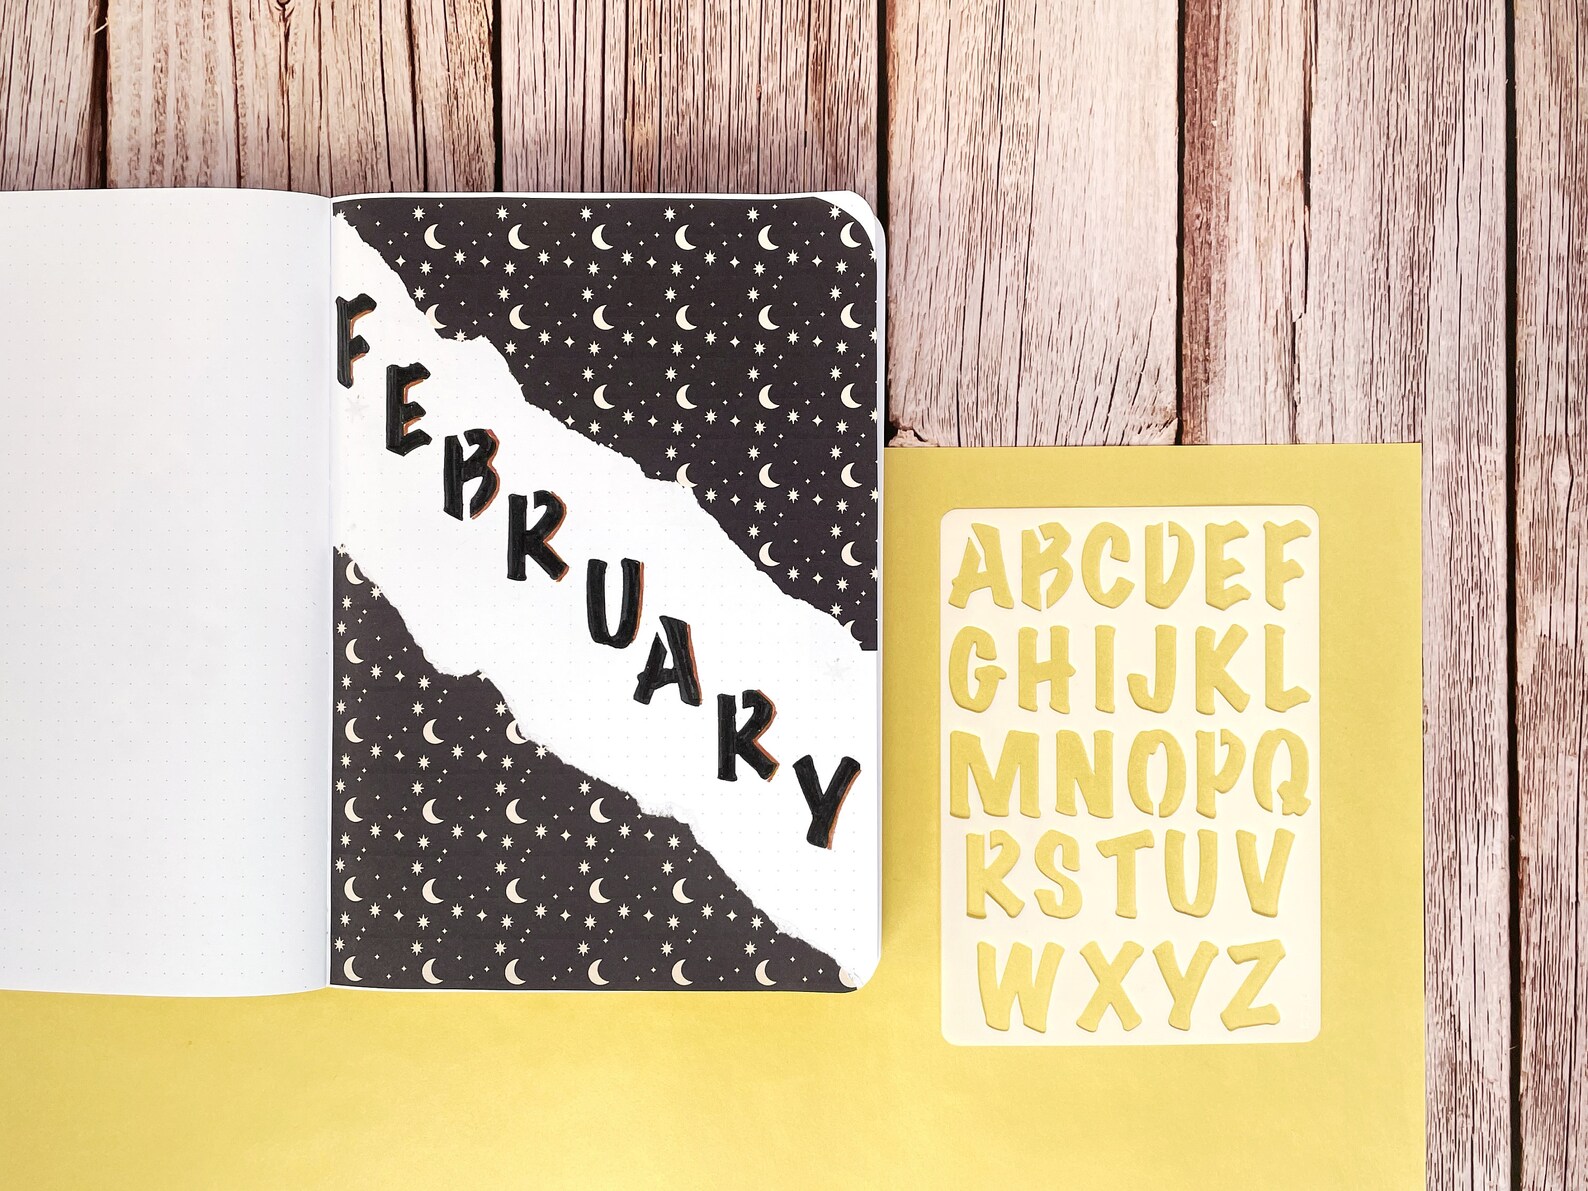 FEBRUARY
ABCDEF
GHIJKL
MNOPQ
RSTUV
WXYZ